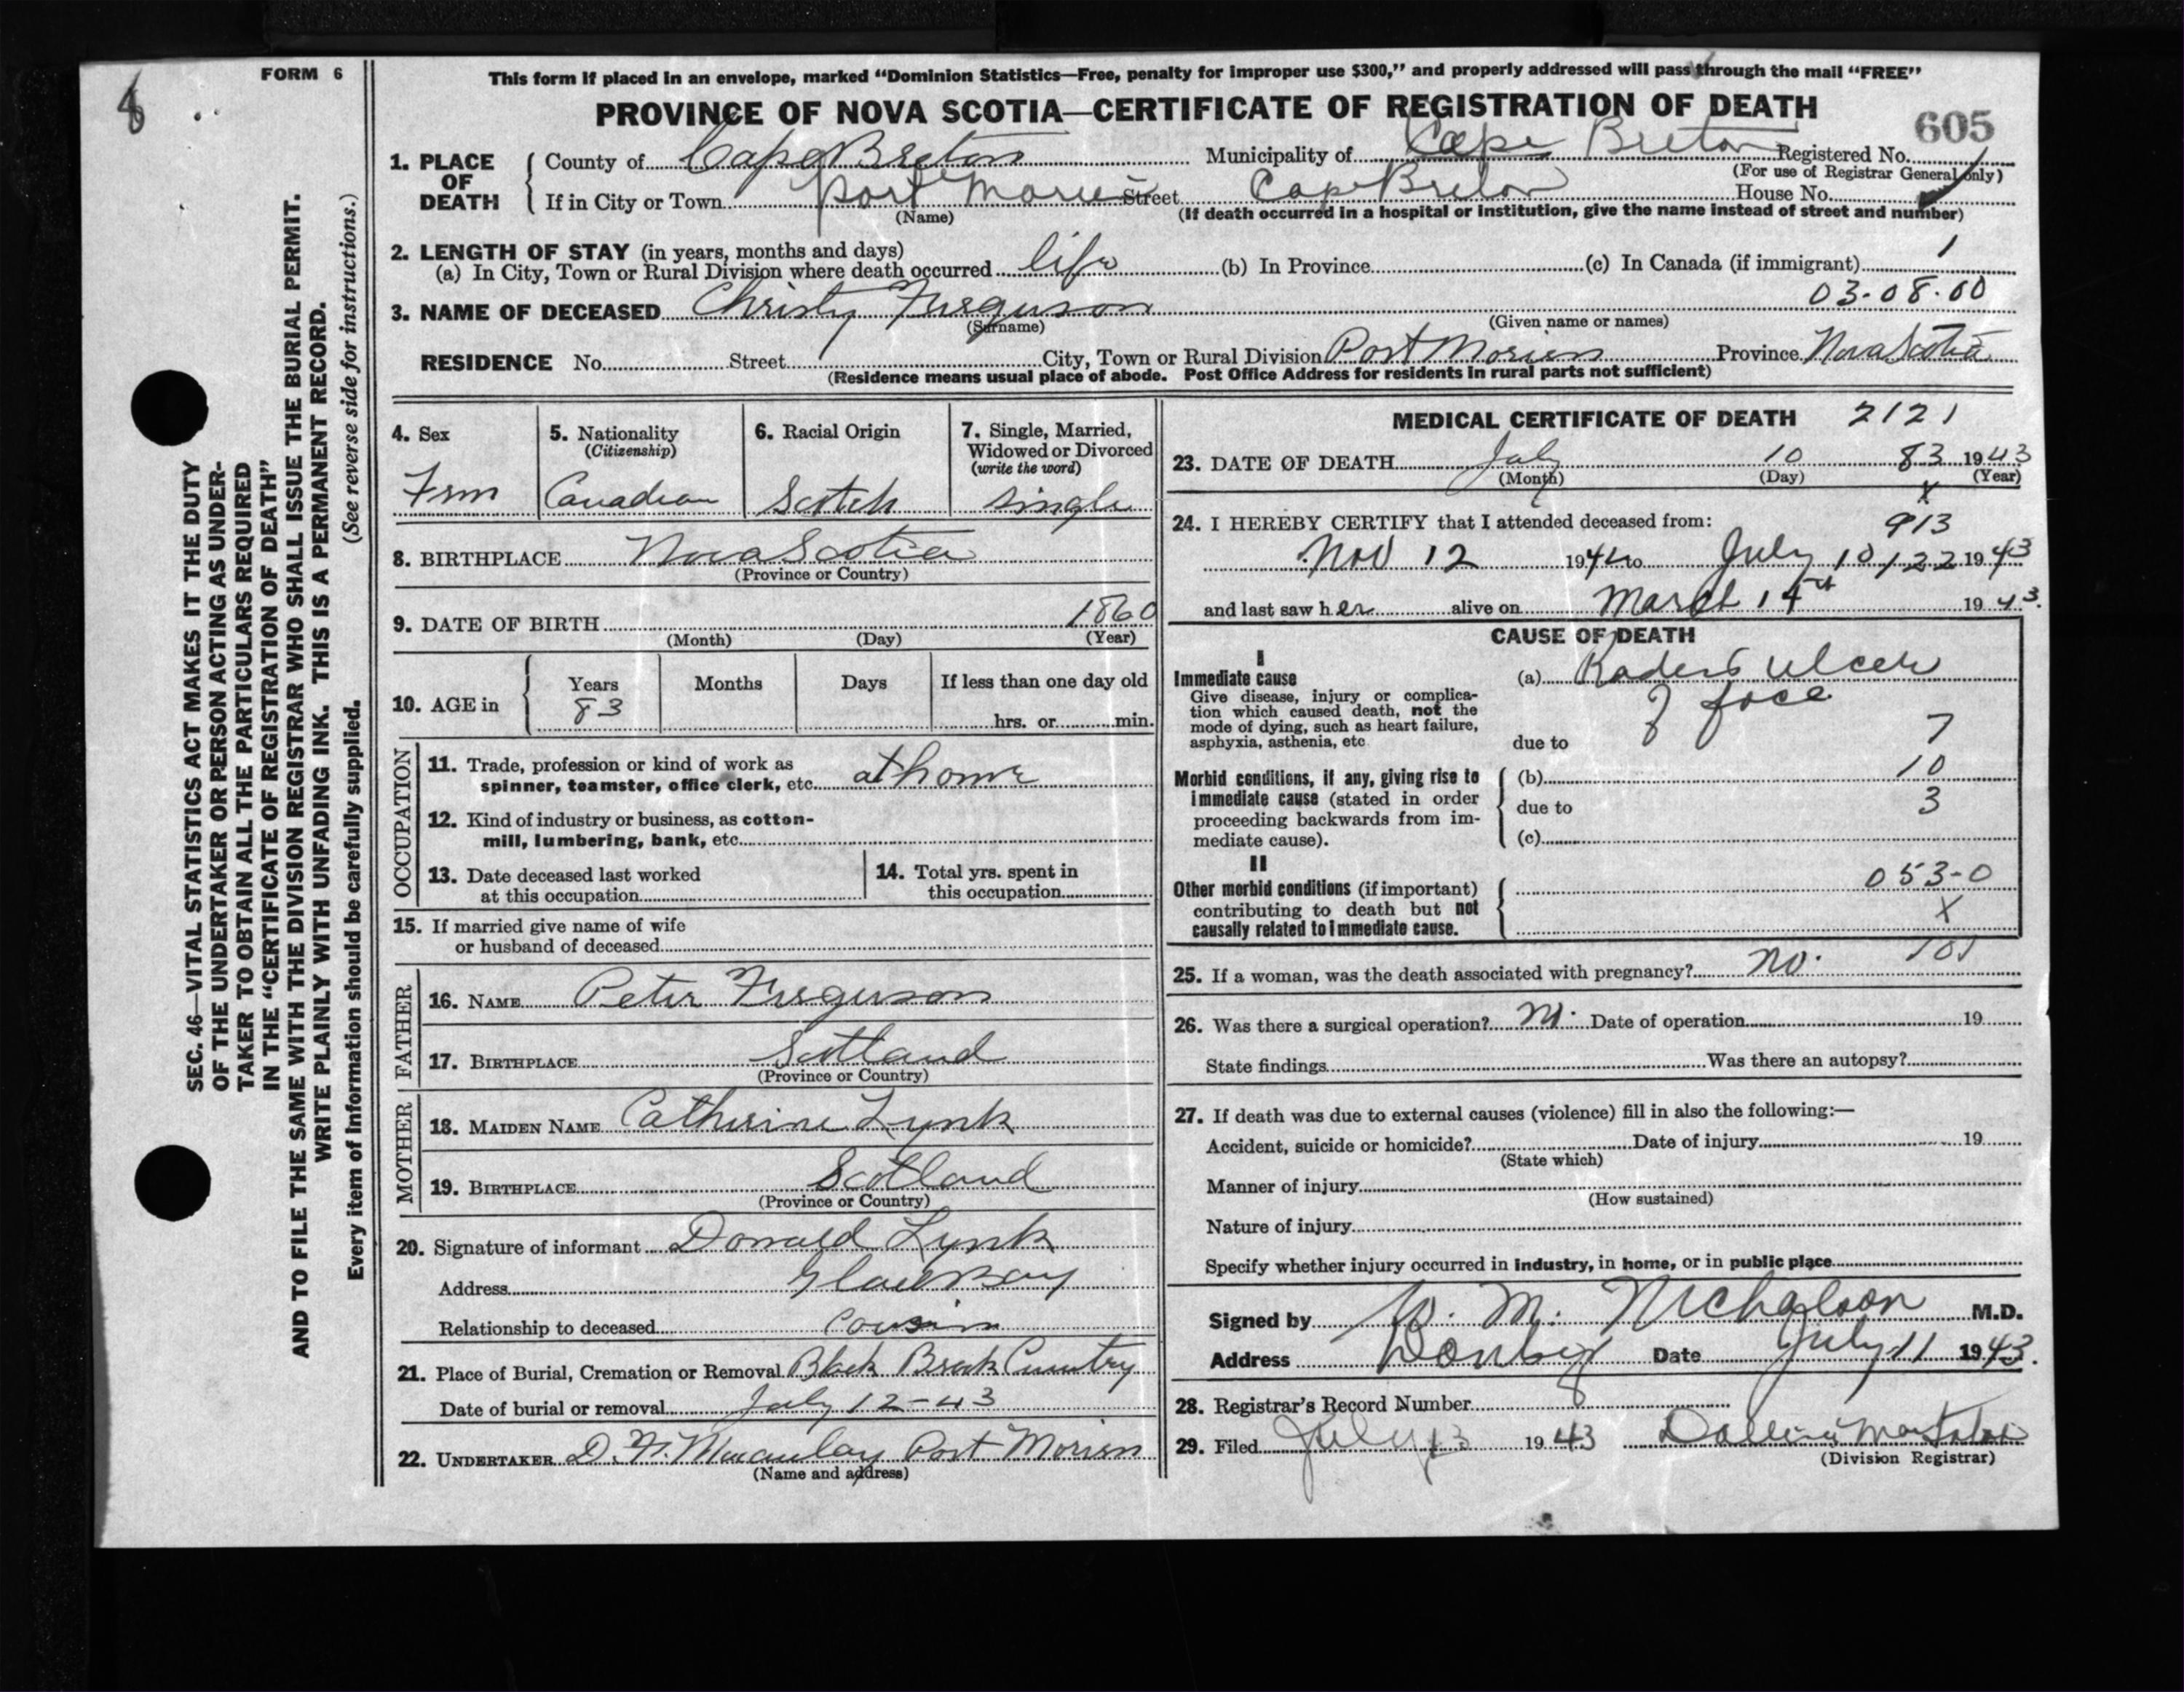 FORM 6
8
This form if placed in an envelope, marked "Dominion Statistics—Free, penalty for improper use $300," and properly addressed will pass through the mail "FREE"
PROVINCE OF NOVA SCOTIA—CERTIFICATE OF REGISTRATION OF DEATH
605
1. PLACE OF DEATH
County of Cape Breton Municipality of Cape Breton Registered No.
(For use of Registrar General only)
If in City or Town Port Morien Street Cape Breton House No.
(Name) (If death occurred in a hospital or institution, give the name instead of street and number)
2. LENGTH OF STAY (in years, months and days)
(a) In City, Town or Rural Division where death occurred life (b) In Province (c) In Canada (if immigrant) 1
03-08-00
3. NAME OF DECEASED Christy Ferguson
(Surname) (Given name or names)
RESIDENCE No. Street City, Town or Rural Division Port Morien Province Nova Scotia
(Residence means usual place of abode. Post Office Address for residents in rural parts not sufficient)
4. Sex
Fem
5. Nationality
(Citizenship)
Canadian
6. Racial Origin
Scotch
7. Single, Married,
Widowed or Divorced
(write the word)
single
8. BIRTHPLACE Nova Scotia
(Province or Country)
9. DATE OF BIRTH 1860
(Month) (Day) (Year)
10. AGE in
Years Months Days If less than one day old
83
hrs. or min.
OCCUPATION
11. Trade, profession or kind of work as
spinner, teamster, office clerk, etc. at home
12. Kind of industry or business, as cotton-
mill, lumbering, bank, etc.
13. Date deceased last worked
at this occupation
14. Total yrs. spent in
this occupation
15. If married give name of wife
or husband of deceased
FATHER
16. NAME Peter Ferguson
17. BIRTHPLACE Scotland
(Province or Country)
MOTHER
18. MAIDEN NAME Catherine Lynk
19. BIRTHPLACE Scotland
(Province or Country)
20. Signature of informant Donald Lynk
Address Glace Bay
Relationship to deceased Cousin
21. Place of Burial, Cremation or Removal Black Brook Cemetry
Date of burial or removal July 12-43
22. UNDERTAKER D. Macaulay Port Morien
(Name and address)
MEDICAL CERTIFICATE OF DEATH 2121
23. DATE OF DEATH July 10 83 1943
(Month) (Day) (Year)
X
24. I HEREBY CERTIFY that I attended deceased from: 913
Nov 12 194 to July 10 122 1943
and last saw her alive on March 14th 1943.
CAUSE OF DEATH
I
Immediate cause
Give disease, injury or complica-
tion which caused death, not the
mode of dying, such as heart failure,
asphyxia, asthenia, etc
(a) ulcer
face
due to 7
Morbid conditions, if any, giving rise to
immediate cause (stated in order
proceeding backwards from im-
mediate cause).
(b) 10
due to 3
(c)
II
Other morbid conditions (if important)
contributing to death but not
causally related to immediate cause.
053-0
X
101
25. If a woman, was the death associated with pregnancy? No.
26. Was there a surgical operation? Date of operation 19
State findings Was there an autopsy?
27. If death was due to external causes (violence) fill in also the following:—
Accident, suicide or homicide? Date of injury 19
(State which)
Manner of injury
(How sustained)
Nature of injury
Specify whether injury occurred in industry, in home, or in public place
Signed by W. M. Nicholson M.D.
Address Date July 11 1943.
28. Registrar's Record Number 8
29. Filed July 13 1943
(Division Registrar)
SEC. 46—VITAL STATISTICS ACT MAKES IT THE DUTY
OF THE UNDERTAKER OR PERSON ACTING AS UNDER-
TAKER TO OBTAIN ALL THE PARTICULARS REQUIRED
IN THE "CERTIFICATE OF REGISTRATION OF DEATH"
AND TO FILE THE SAME WITH THE DIVISION REGISTRAR WHO SHALL ISSUE THE BURIAL PERMIT.
WRITE PLAINLY WITH UNFADING INK. THIS IS A PERMANENT RECORD.
Every item of information should be carefully supplied. (See reverse side for instructions.)